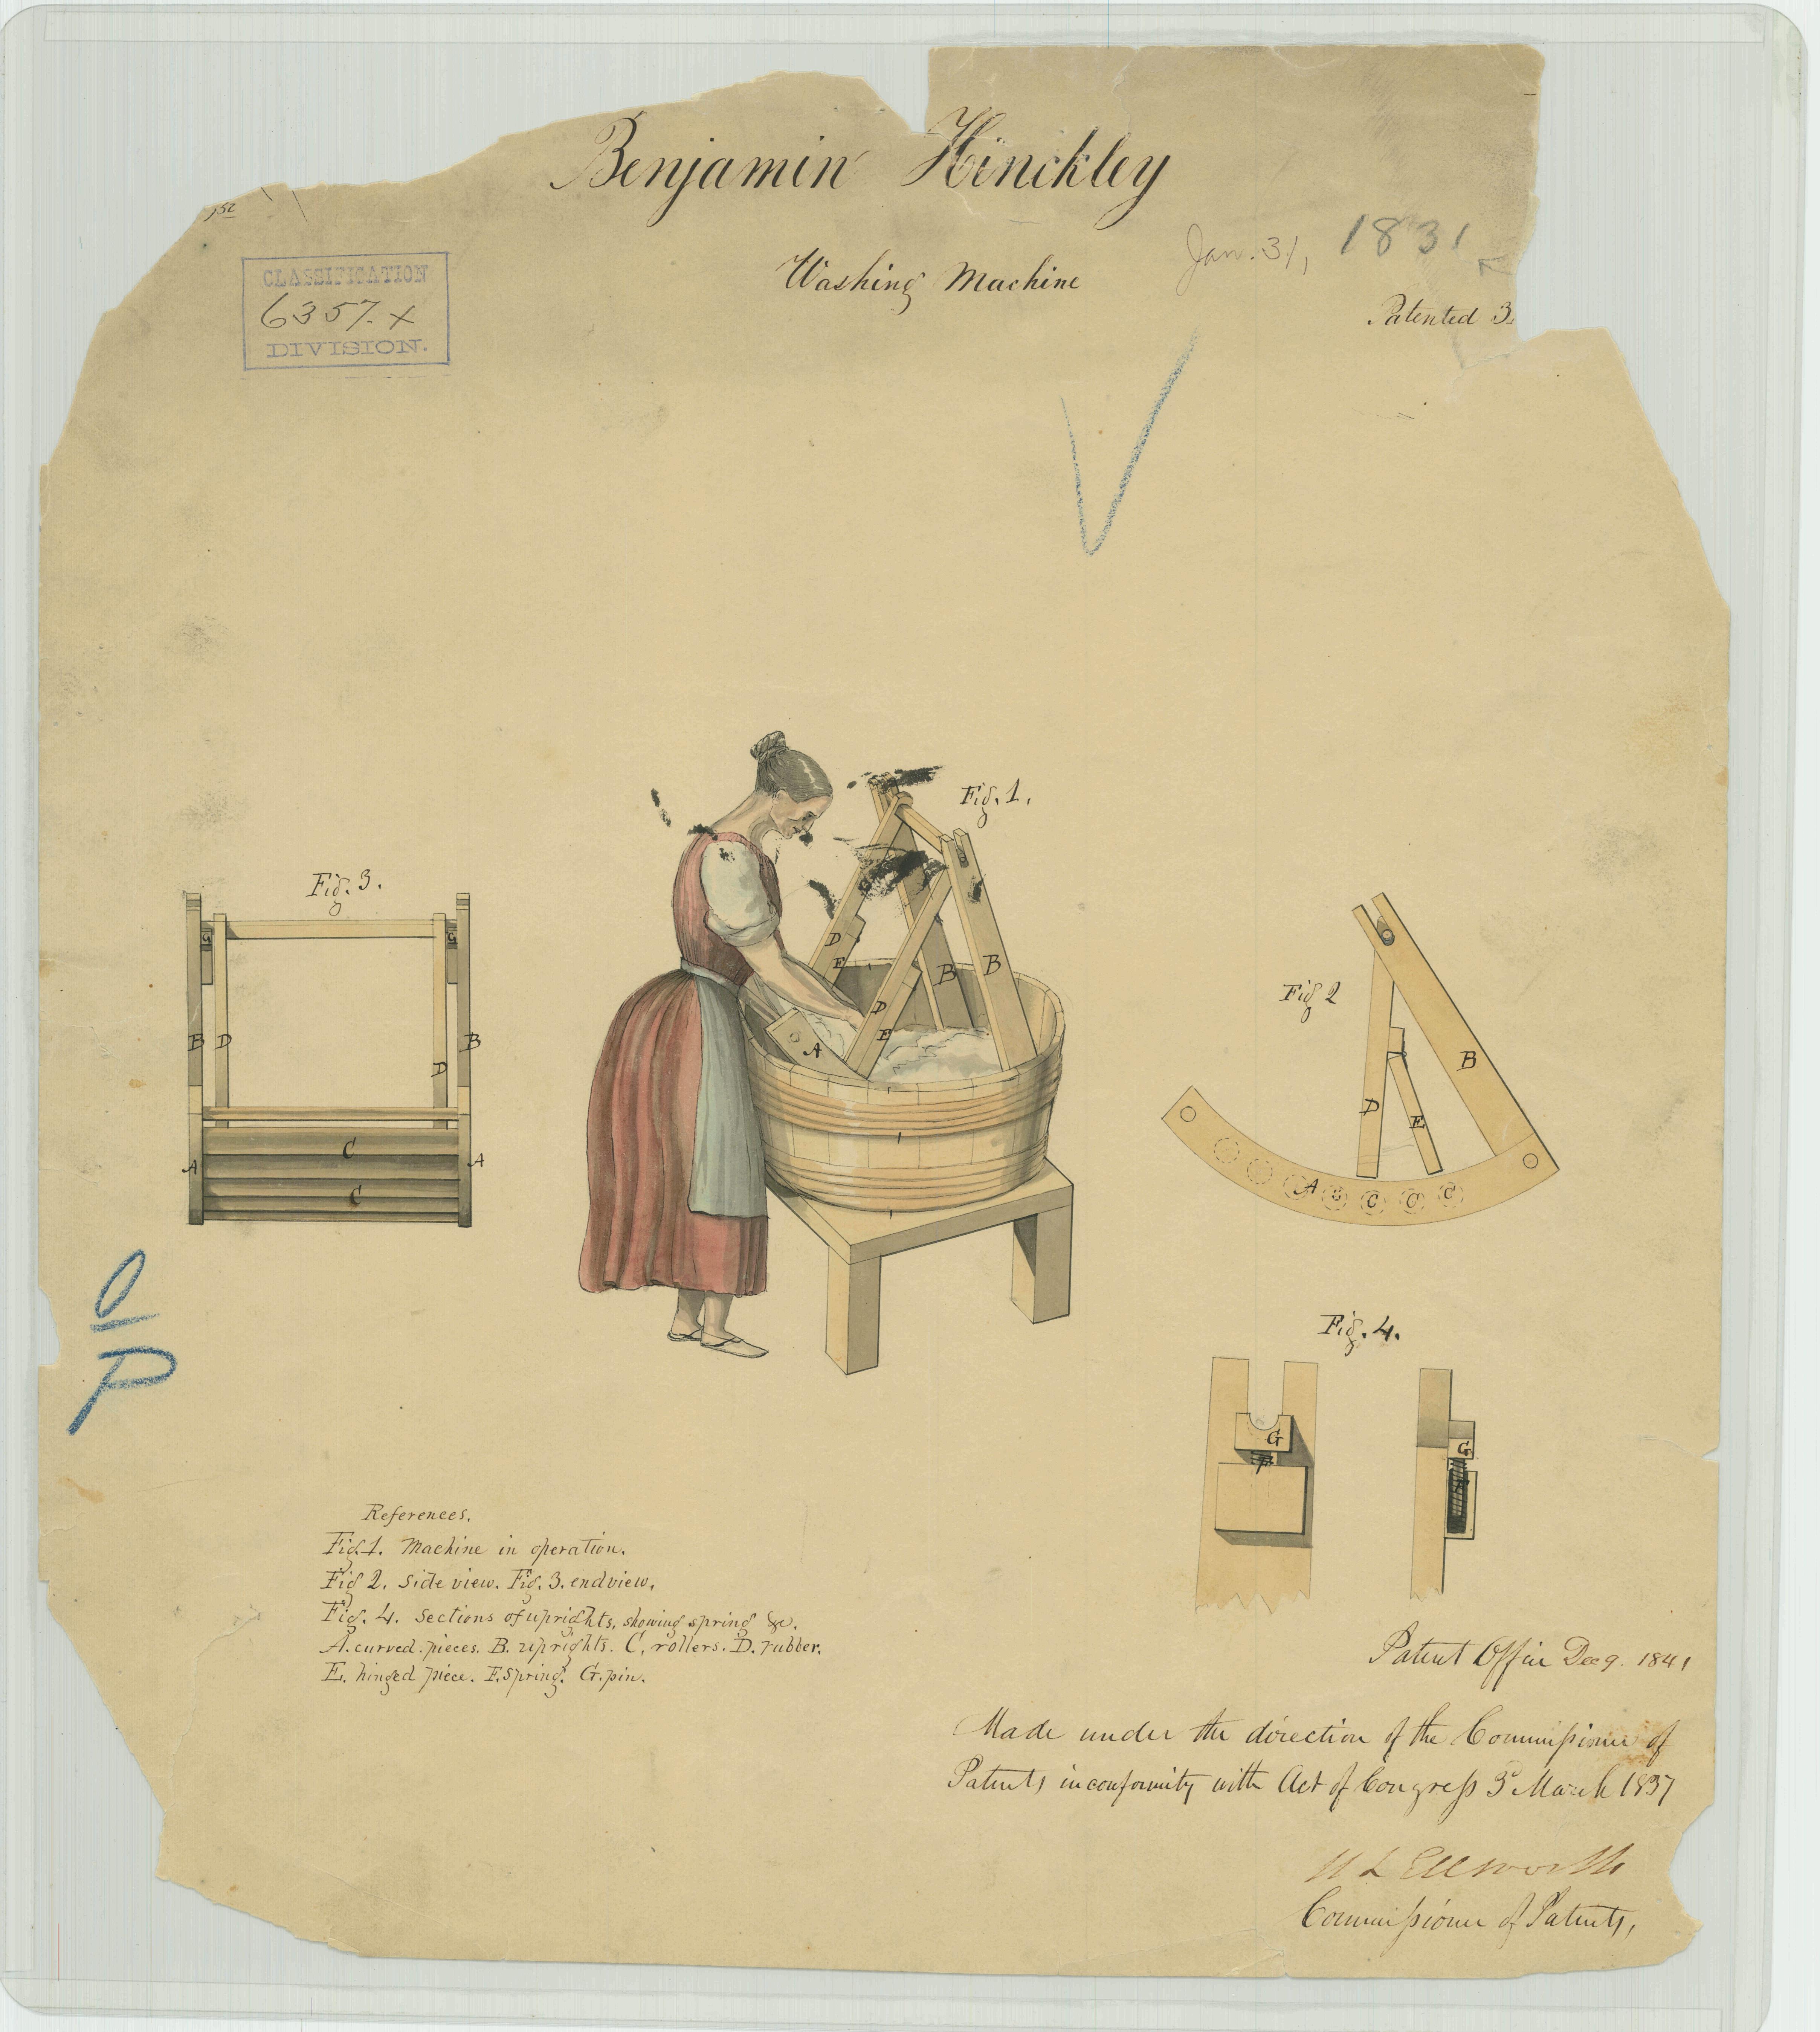 Benjamin Hinckley
1st
Washing Machine
Jan. 31, 1831
Patented 3
CLASSIFICATION
6357.x
DIVISION.
Fig. 1.
D
E
D
E
B
B
A
Fig. 3.
G
G
B
D
D
B
C
A
A
C
Fig 2
B
D
E
A
C
C
C
C
Fig. 4.
G
F
G
O
P
References.
Fig. 1. Machine in operation.
Fig 2. side view. Fig. 3. endview.
Fig. 4. Sections of uprights, showing spring &c.
A. curved pieces. B. uprights. C. rollers. D. rubber.
E. hinged piece. F. spring. G. pin.
Patent Office Dec 9. 1841
Made under the direction of the Commissioner of
Patents in conformity with Act of Congress 3d March 1837
H L Ellsworth
Commissioner of Patents,